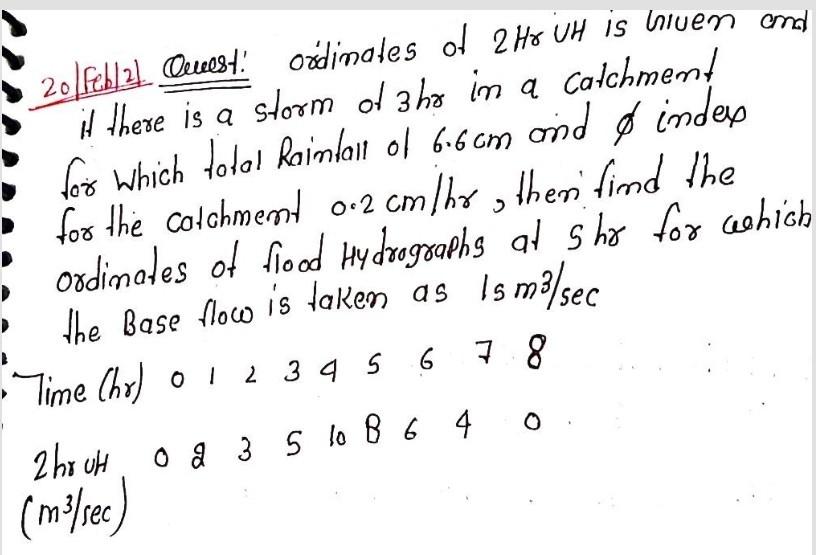 20/Feb/21 Quest: ordinates of 2Hr UH is Given and
if there is a storm of 3hr in a catchment
for which total Rainfall of 6.6 cm and ϕ index
for the catchment 0.2 cm/hr, then find the
ordinates of flood Hydrographs at 5 hr for which
the Base flow is taken as 15 m³/sec
Time (hr) 0 1 2 3 4 5 6 7 8
2 hr UH 0 2 3 5 10 8 6 4 0
(m³/sec)